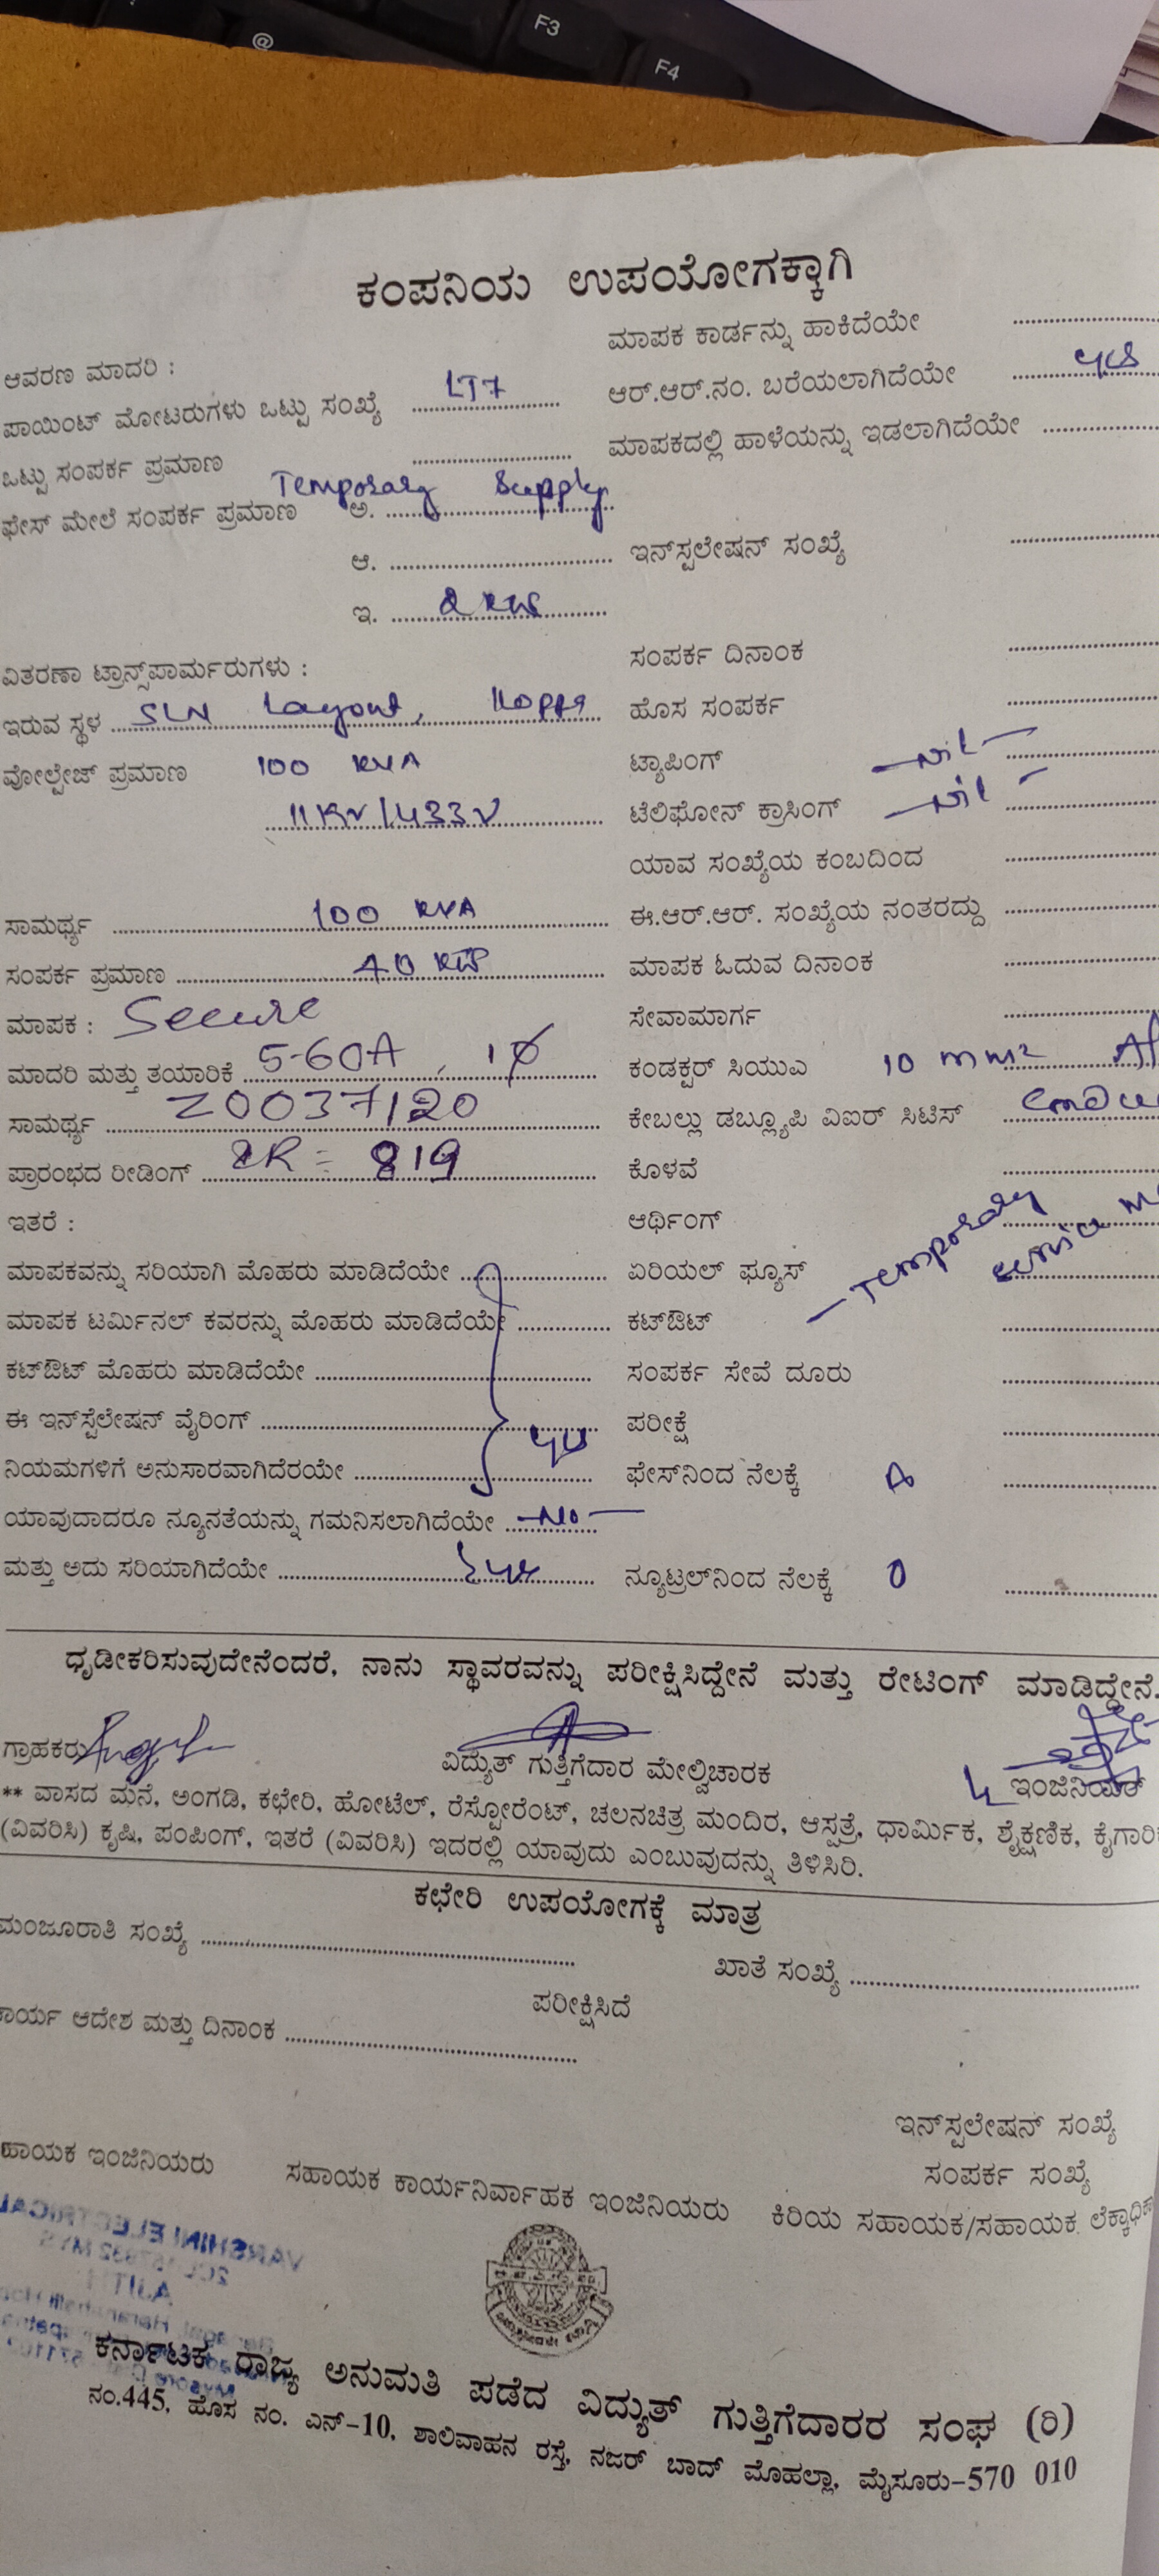 @ F3 F4
ಕಂಪನಿಯ ಉಪಯೋಗಕ್ಕಾಗಿ
ಆವರಣ ಮಾದರಿ :
ಪಾಯಿಂಟ್ ಮೋಟರುಗಳು ಒಟ್ಟು ಸಂಖ್ಯೆ LT7
ಒಟ್ಟು ಸಂಪರ್ಕ ಪ್ರಮಾಣ
ಫೇಸ್ ಮೇಲೆ ಸಂಪರ್ಕ ಪ್ರಮಾಣ ಅ. Temporary Supply
ಆ.
ಇ. 2 KW
ವಿತರಣಾ ಟ್ರಾನ್ಸ್‌ಪಾರ್ಮರುಗಳು :
ಇರುವ ಸ್ಥಳ SLN Layout,
ವೋಲ್ಟೇಜ್ ಪ್ರಮಾಣ 100 KVA
11KV/433V
ಸಾಮರ್ಥ್ಯ 100 KVA
ಸಂಪರ್ಕ ಪ್ರಮಾಣ 40 KW
ಮಾಪಕ : Secure
ಮಾದರಿ ಮತ್ತು ತಯಾರಿಕೆ 5-60A, 1Ø
ಸಾಮರ್ಥ್ಯ Z0037120
ಪ್ರಾರಂಭದ ರೀಡಿಂಗ್ IR = 819
ಇತರೆ :
ಮಾಪಕವನ್ನು ಸರಿಯಾಗಿ ಮೊಹರು ಮಾಡಿದೆಯೇ
ಮಾಪಕ ಟರ್ಮಿನಲ್ ಕವರನ್ನು ಮೊಹರು ಮಾಡಿದೆಯೇ
ಕಟ್‌ಔಟ್ ಮೊಹರು ಮಾಡಿದೆಯೇ
ಈ ಇನ್‌ಸ್ಟೆಲೇಷನ್ ವೈರಿಂಗ್ yes
ನಿಯಮಗಳಿಗೆ ಅನುಸಾರವಾಗಿದೆರಯೇ
ಯಾವುದಾದರೂ ನ್ಯೂನತೆಯನ್ನು ಗಮನಿಸಲಾಗಿದೆಯೇ -No-
ಮತ್ತು ಅದು ಸರಿಯಾಗಿದೆಯೇ yes
ಮಾಪಕ ಕಾರ್ಡನ್ನು ಹಾಕಿದೆಯೇ
ಆರ್.ಆರ್.ನಂ. ಬರೆಯಲಾಗಿದೆಯೇ yes
ಮಾಪಕದಲ್ಲಿ ಹಾಳೆಯನ್ನು ಇಡಲಾಗಿದೆಯೇ
ಇನ್‌ಸ್ಟಲೇಷನ್ ಸಂಖ್ಯೆ
ಸಂಪರ್ಕ ದಿನಾಂಕ
ಹೊಸ ಸಂಪರ್ಕ
ಟ್ಯಾಪಿಂಗ್ -Nil-
ಟೆಲಿಫೋನ್ ಕ್ರಾಸಿಂಗ್ -Nil-
ಯಾವ ಸಂಖ್ಯೆಯ ಕಂಬದಿಂದ
ಈ.ಆರ್.ಆರ್. ಸಂಖ್ಯೆಯ ನಂತರದ್ದು
ಮಾಪಕ ಓದುವ ದಿನಾಂಕ
ಸೇವಾಮಾರ್ಗ
ಕಂಡಕ್ಟರ್ ಸಿಯುಎ 10 mm2
ಕೇಬಲ್ಲು ಡಬ್ಲ್ಯೂಪಿ ವಿಐರ್ ಸಿಟಿಸ್
ಕೊಳವೆ
ಆರ್ಥಿಂಗ್
ಏರಿಯಲ್ ಫ್ಯೂಸ್ -Temporary
ಕಟ್‌ಔಟ್
ಸಂಪರ್ಕ ಸೇವೆ ದೂರು
ಪರೀಕ್ಷೆ
ಫೇಸ್‌ನಿಂದ ನೆಲಕ್ಕೆ
ನ್ಯೂಟ್ರಲ್‌ನಿಂದ ನೆಲಕ್ಕೆ 0
ಧೃಡೀಕರಿಸುವುದೇನೆಂದರೆ, ನಾನು ಸ್ಥಾವರವನ್ನು ಪರೀಕ್ಷಿಸಿದ್ದೇನೆ ಮತ್ತು ರೇಟಿಂಗ್ ಮಾಡಿದ್ದೇನೆ.
ಗ್ರಾಹಕರು ವಿದ್ಯುತ್ ಗುತ್ತಿಗೆದಾರ ಮೇಲ್ವಿಚಾರಕ ಇಂಜಿನಿಯರ್
** ವಾಸದ ಮನೆ, ಅಂಗಡಿ, ಕಛೇರಿ, ಹೋಟೆಲ್, ರೆಸ್ಟೋರೆಂಟ್, ಚಲನಚಿತ್ರ ಮಂದಿರ, ಆಸ್ಪತ್ರೆ, ಧಾರ್ಮಿಕ, ಶೈಕ್ಷಣಿಕ,
(ವಿವರಿಸಿ) ಕೃಷಿ, ಪಂಪಿಂಗ್, ಇತರೆ (ವಿವರಿಸಿ) ಇದರಲ್ಲಿ ಯಾವುದು ಎಂಬುವುದನ್ನು ತಿಳಿಸಿರಿ.
ಕಛೇರಿ ಉಪಯೋಗಕ್ಕೆ ಮಾತ್ರ
ಮಂಜೂರಾತಿ ಸಂಖ್ಯೆ
ಖಾತೆ ಸಂಖ್ಯೆ
ಪರೀಕ್ಷಿಸಿದೆ
ಕಾರ್ಯ ಆದೇಶ ಮತ್ತು ದಿನಾಂಕ
ಇನ್‌ಸ್ಟಲೇಷನ್ ಸಂಖ್ಯೆ
ಸಂಪರ್ಕ ಸಂಖ್ಯೆ
ಹಾಯಕ ಇಂಜಿನಿಯರು ಸಹಾಯಕ ಕಾರ್ಯನಿರ್ವಾಹಕ ಇಂಜಿನಿಯರು ಕಿರಿಯ ಸಹಾಯಕ/ಸಹಾಯಕ
ಕರ್ನಾಟಕ ರಾಜ್ಯ ಅನುಮತಿ ಪಡೆದ ವಿದ್ಯುತ್ ಗುತ್ತಿಗೆದಾರರ ಸಂಘ (ರಿ)
ನಂ.445, ಹೊಸ ನಂ. ಎನ್-10, ಶಾಲಿವಾಹನ ರಸ್ತೆ, ನಜರ್ ಬಾದ್ ಮೊಹಲ್ಲಾ, ಮೈಸೂರು-570 010